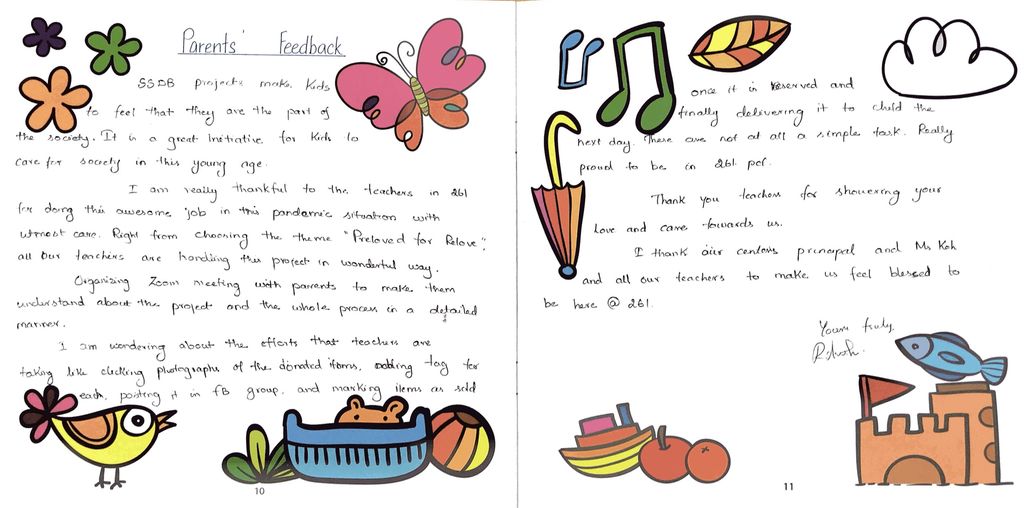 Parents' Feedback
SSDB projects make Kids
to feel that they are the part of
the society. It is a great Initiative for Kids to
care for society in this young age.
I am really thankful to the teachers in 261
for doing this awesome job in this pandamic situation with
utmost care. Right from choosing the theme "Preloved for Relove",
all our teachers are handling this project in wonderful way.
Organising Zoom meeting with parents to make them
understand about the project and the whole process in a detailed
manner.
I am wondering about the efforts that teachers are
taking like clicking photographs of the donated items, adding tag for
each, posting it in FB group, and marking items as sold
10
once it is reserved and
finally delivering it to child the
next day. These are not at all a simple task. Really
proud to be in 261 pcf.
Thank you teachers for showering your
Love and care towards us.
I thank our centers principal and Ms Koh
and all our teachers to make us feel blessed to
be here @ 261.
Yours truly,
11